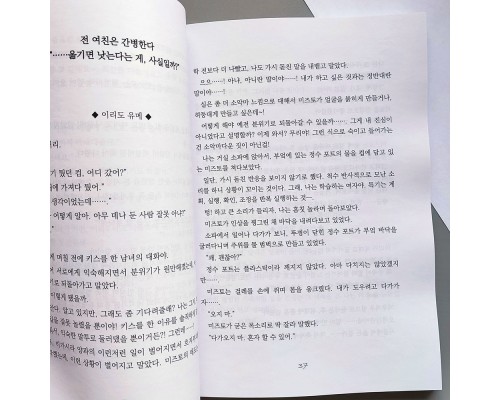 전 여친은 간병한다
"……옮기면 낫는다는 게, 사실일까?"
◆ 이리도 유메 ◆
리.
기 뒀던 컵, 어디 갔어?"
에 가져다 뒀어."
생각이었는데."
어떻게 알아. 아무 데나 둔 사람 잘못 아냐?"
며칠 전에 키스를 한 남녀의 대화야.
서로에게 익숙해지면서 분위기가 원만해졌는데,
되돌아가고 말았다.
어떻게 됐을까.
있지만, 그래도 좀 기다려줄래? 나는 그
을 잘못 놀렸을 뿐이야! 키스를 한 이유를 솔직하게
익숙한 말투로 둘러댔을 뿐이거든?! 그런데……
히가시라 양과의 이런저런 일이 벌어지면서 흐지
했는데, 이런 상황이 벌어지고 말았다. 미즈토의 태도
학 전보다 더 나빴고, 나도 가시 돋친 말을 내뱉고 말았다.
으으……! 아냐, 아니란 말이야……! 내가 하고 싶은 것과는 정반대란
말이야……!
실은 좀 더 소악마 느낌으로 대해서 미즈토가 얼굴을 붉히게 만들거나,
허둥대게 만들고 싶은데~!
어떻게 해야 예전 분위기로 되돌아갈 수 있을까……. 그게 내 진심이
아니었다고 설명할까? 이제 와서? 무리야! 그런 식으로 숙이고 들어가는
건 소악마다운 것이 아닌걸!
나는 거실 소파에 앉아서, 부엌에 있는 정수 포트의 물을 컵에 담고 있
는 미즈토를 쳐다보았다.
일단, 가시 돋친 반응을 보이지 않기로 했다. 척수 반사적으로 모난 소
리를 하니 상황이 꼬이는 것이다. 그래. 나는 학습하는 여자야. 특기는 계
획, 실행, 확인, 조정을 반복 실행하는 것―.
텅! 하고 큰 소리가 들리자, 나는 흠칫 놀라며 돌아보았다.
미즈토가 인상을 찡그린 채 바닥을 내려다보고 있었다.
소파에서 일어나 다가가 보니, 투명이 굳힌 정수 포트가 부엌 바닥을
굴러다니며 주위를 물 범벅으로 만들고 있었다.
"왜, 괜찮아?"
정수 포트는 플라스틱이라 깨지지 않았다. 아마 다치지는 않았겠지
만…….
미즈토는 걸레를 손에 쥐며 몸을 웅크렸다. 내가 도우려고 다가가
자…….
"오지 마."
미즈토가 굳은 목소리로 딱 잘라 말했다.
"다가오지 마. 혼자 할 수 있어."
37